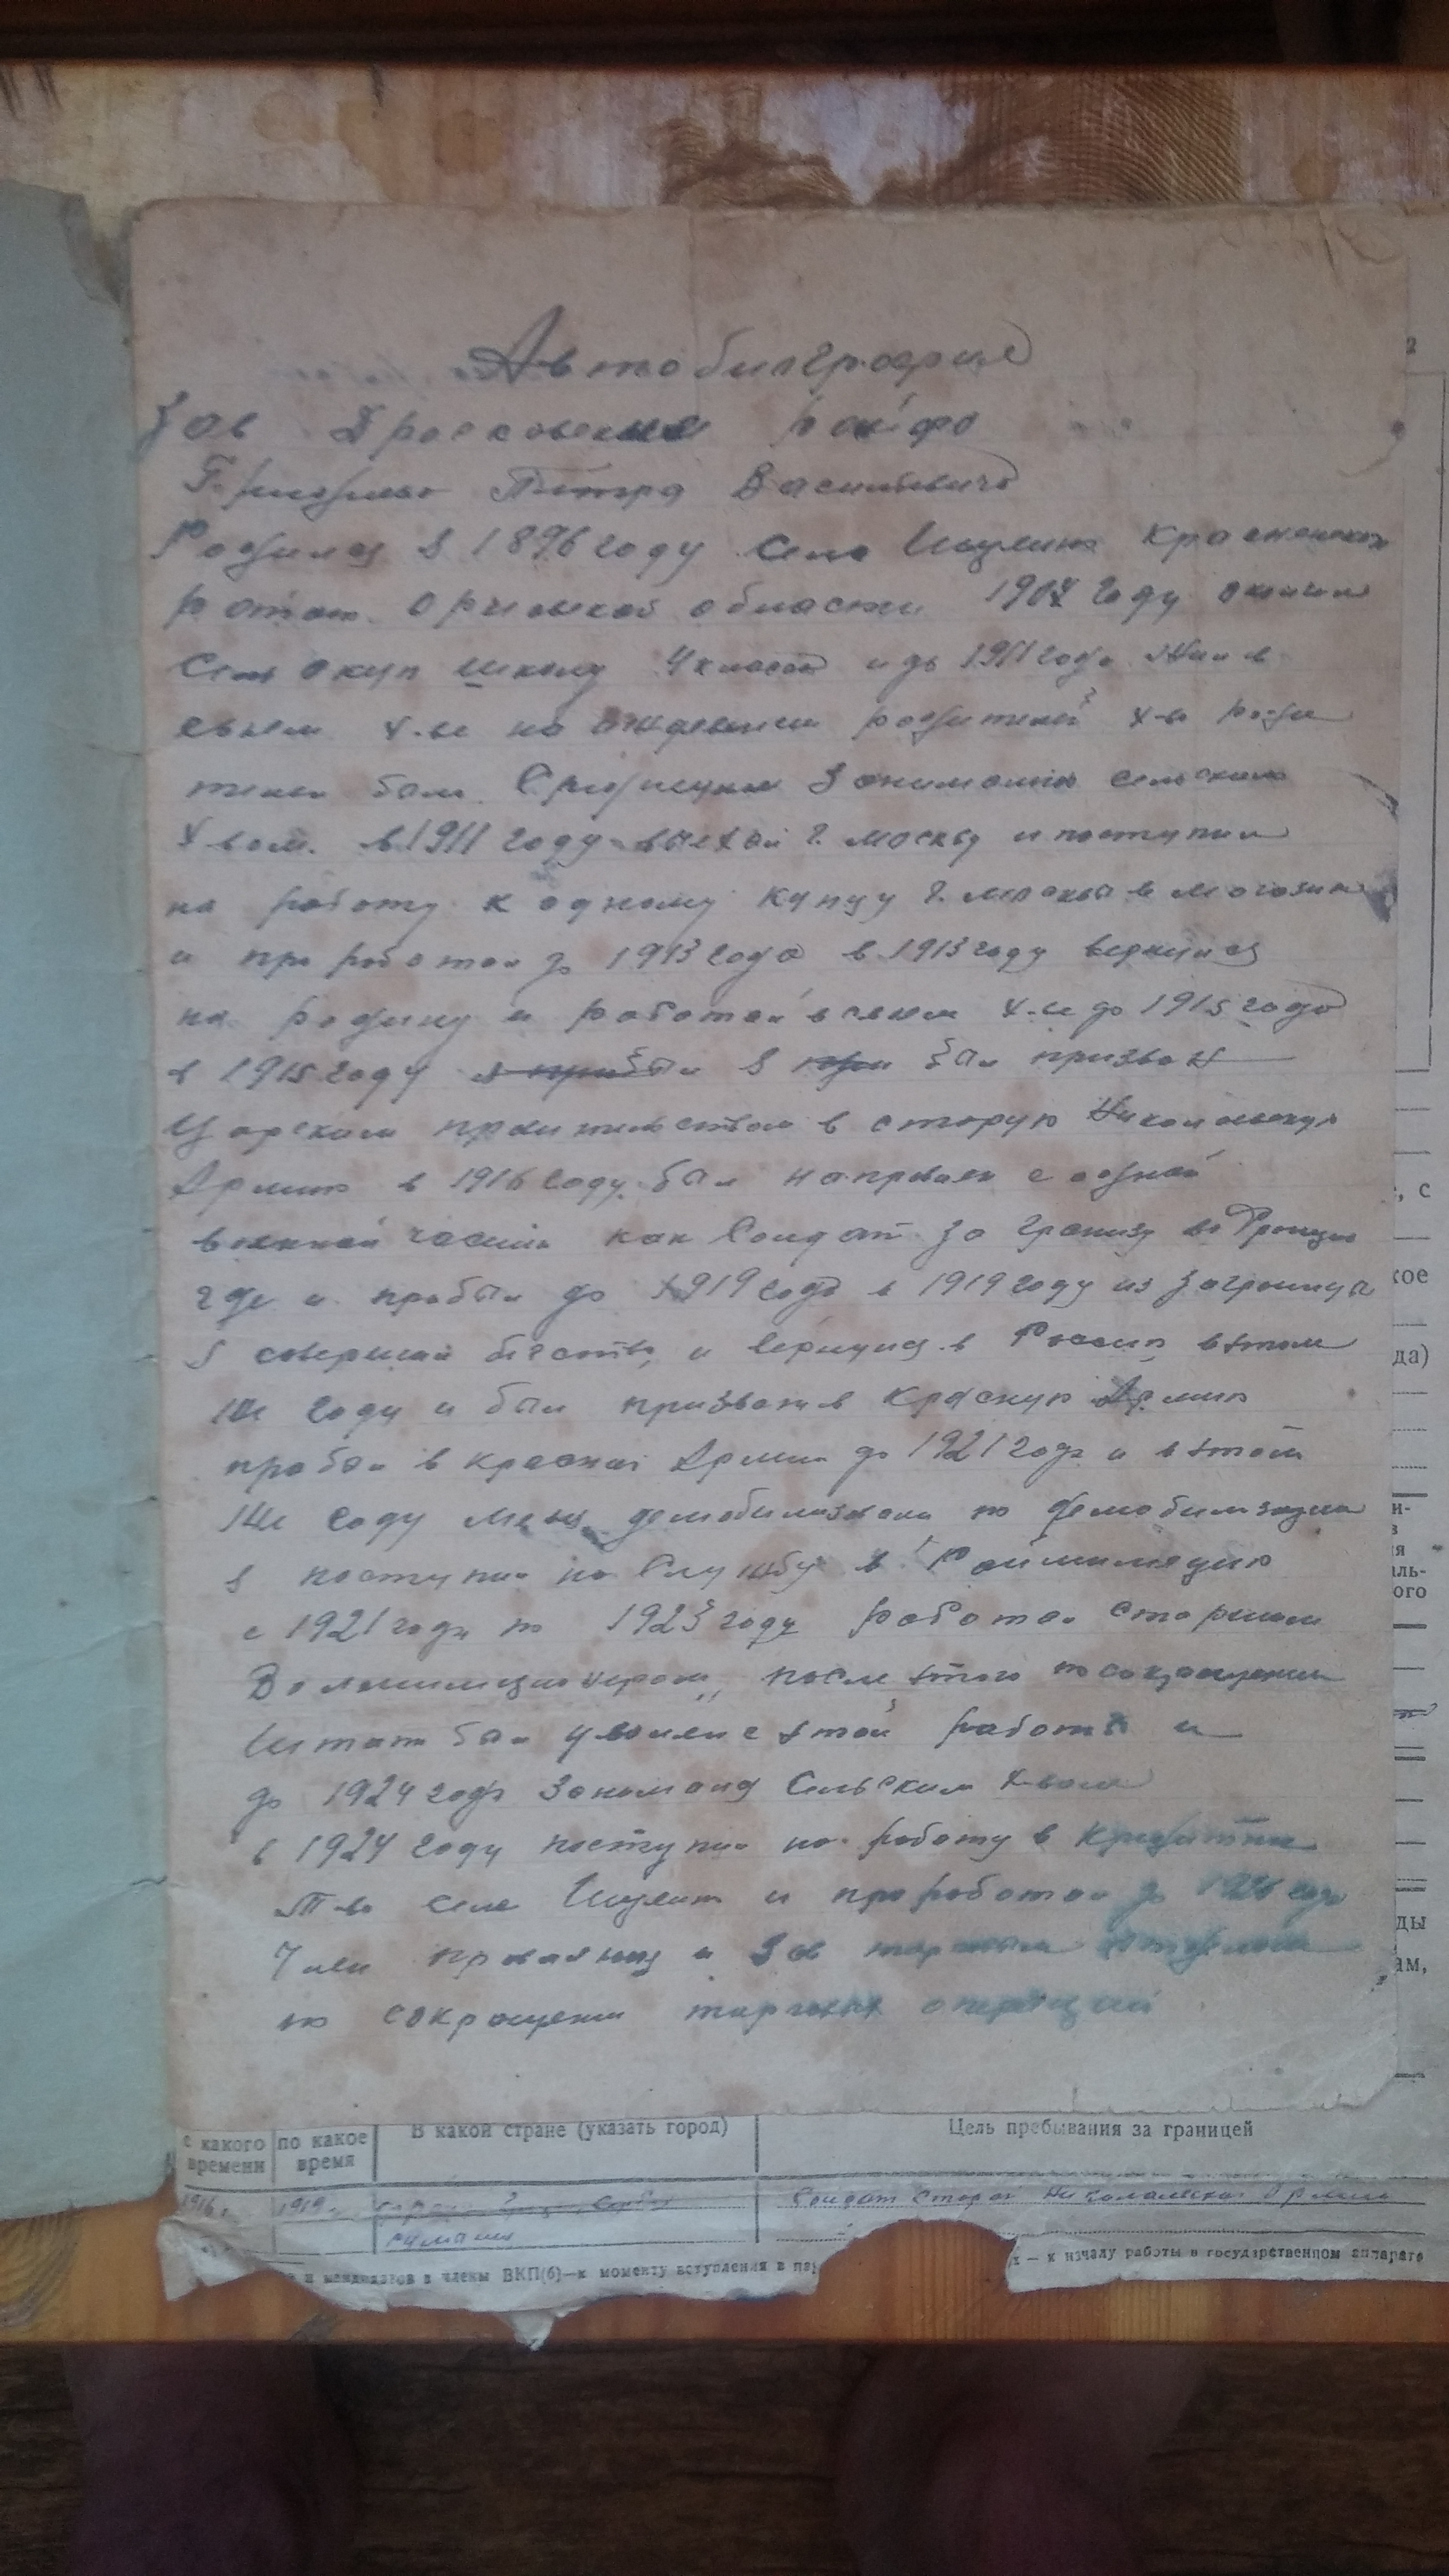 Автобиография
Зав Дросковским райфо
Петра Васильевича
Родился в 1896 году село
Орловской области 1907 году окончил
школу 4 класса и до 1911 года жил в
своем х-ве на иждевении родителей х-во роди
телей был занимались сельским
х вом. в 1911 году выехал г. Москву и поступил
на работу к одному купцу г. Москвы в могозин
и проработал до 1913 года в 1913 году вернулся
на родину и работал в своем х-ве до 1915 года
в 1915 году я был призван
Царским провительством в старую Николаевскую
Армию в 1916 году был направлен с одной
военной частью как Солдат за границу во Францию
где и пробыл до 1919 года в 1919 году из заграницы
я совершил бегство и вернулся в Россию в этом
же году и был призван в красную Армию
пробыл в красной Армии до 1921 года и в этом
же году меня демобилизовали по демобилизации
я поступил на Службу в Раймилицию
с 1921 года по 1923 году работал старшим
Волмилиционером, после этого по сокращению
штата был уволен с этой работы и
до 1924 года занимался Сельским х-вом
в 1924 году поступил на работу в
т-во село и проработал до 1926 года
Член правления и Зав торговым отделом
по сокращении торговых операций
с какого времени
по какое время
В какой стране (указать город)
Цель пребывания за границей
1916 г.
1919 г.
Солдат старой Николаевской Армии
и кандидатов в члены ВКП(б)—к моменту вступления в
— к началу работы в государственном аппарате